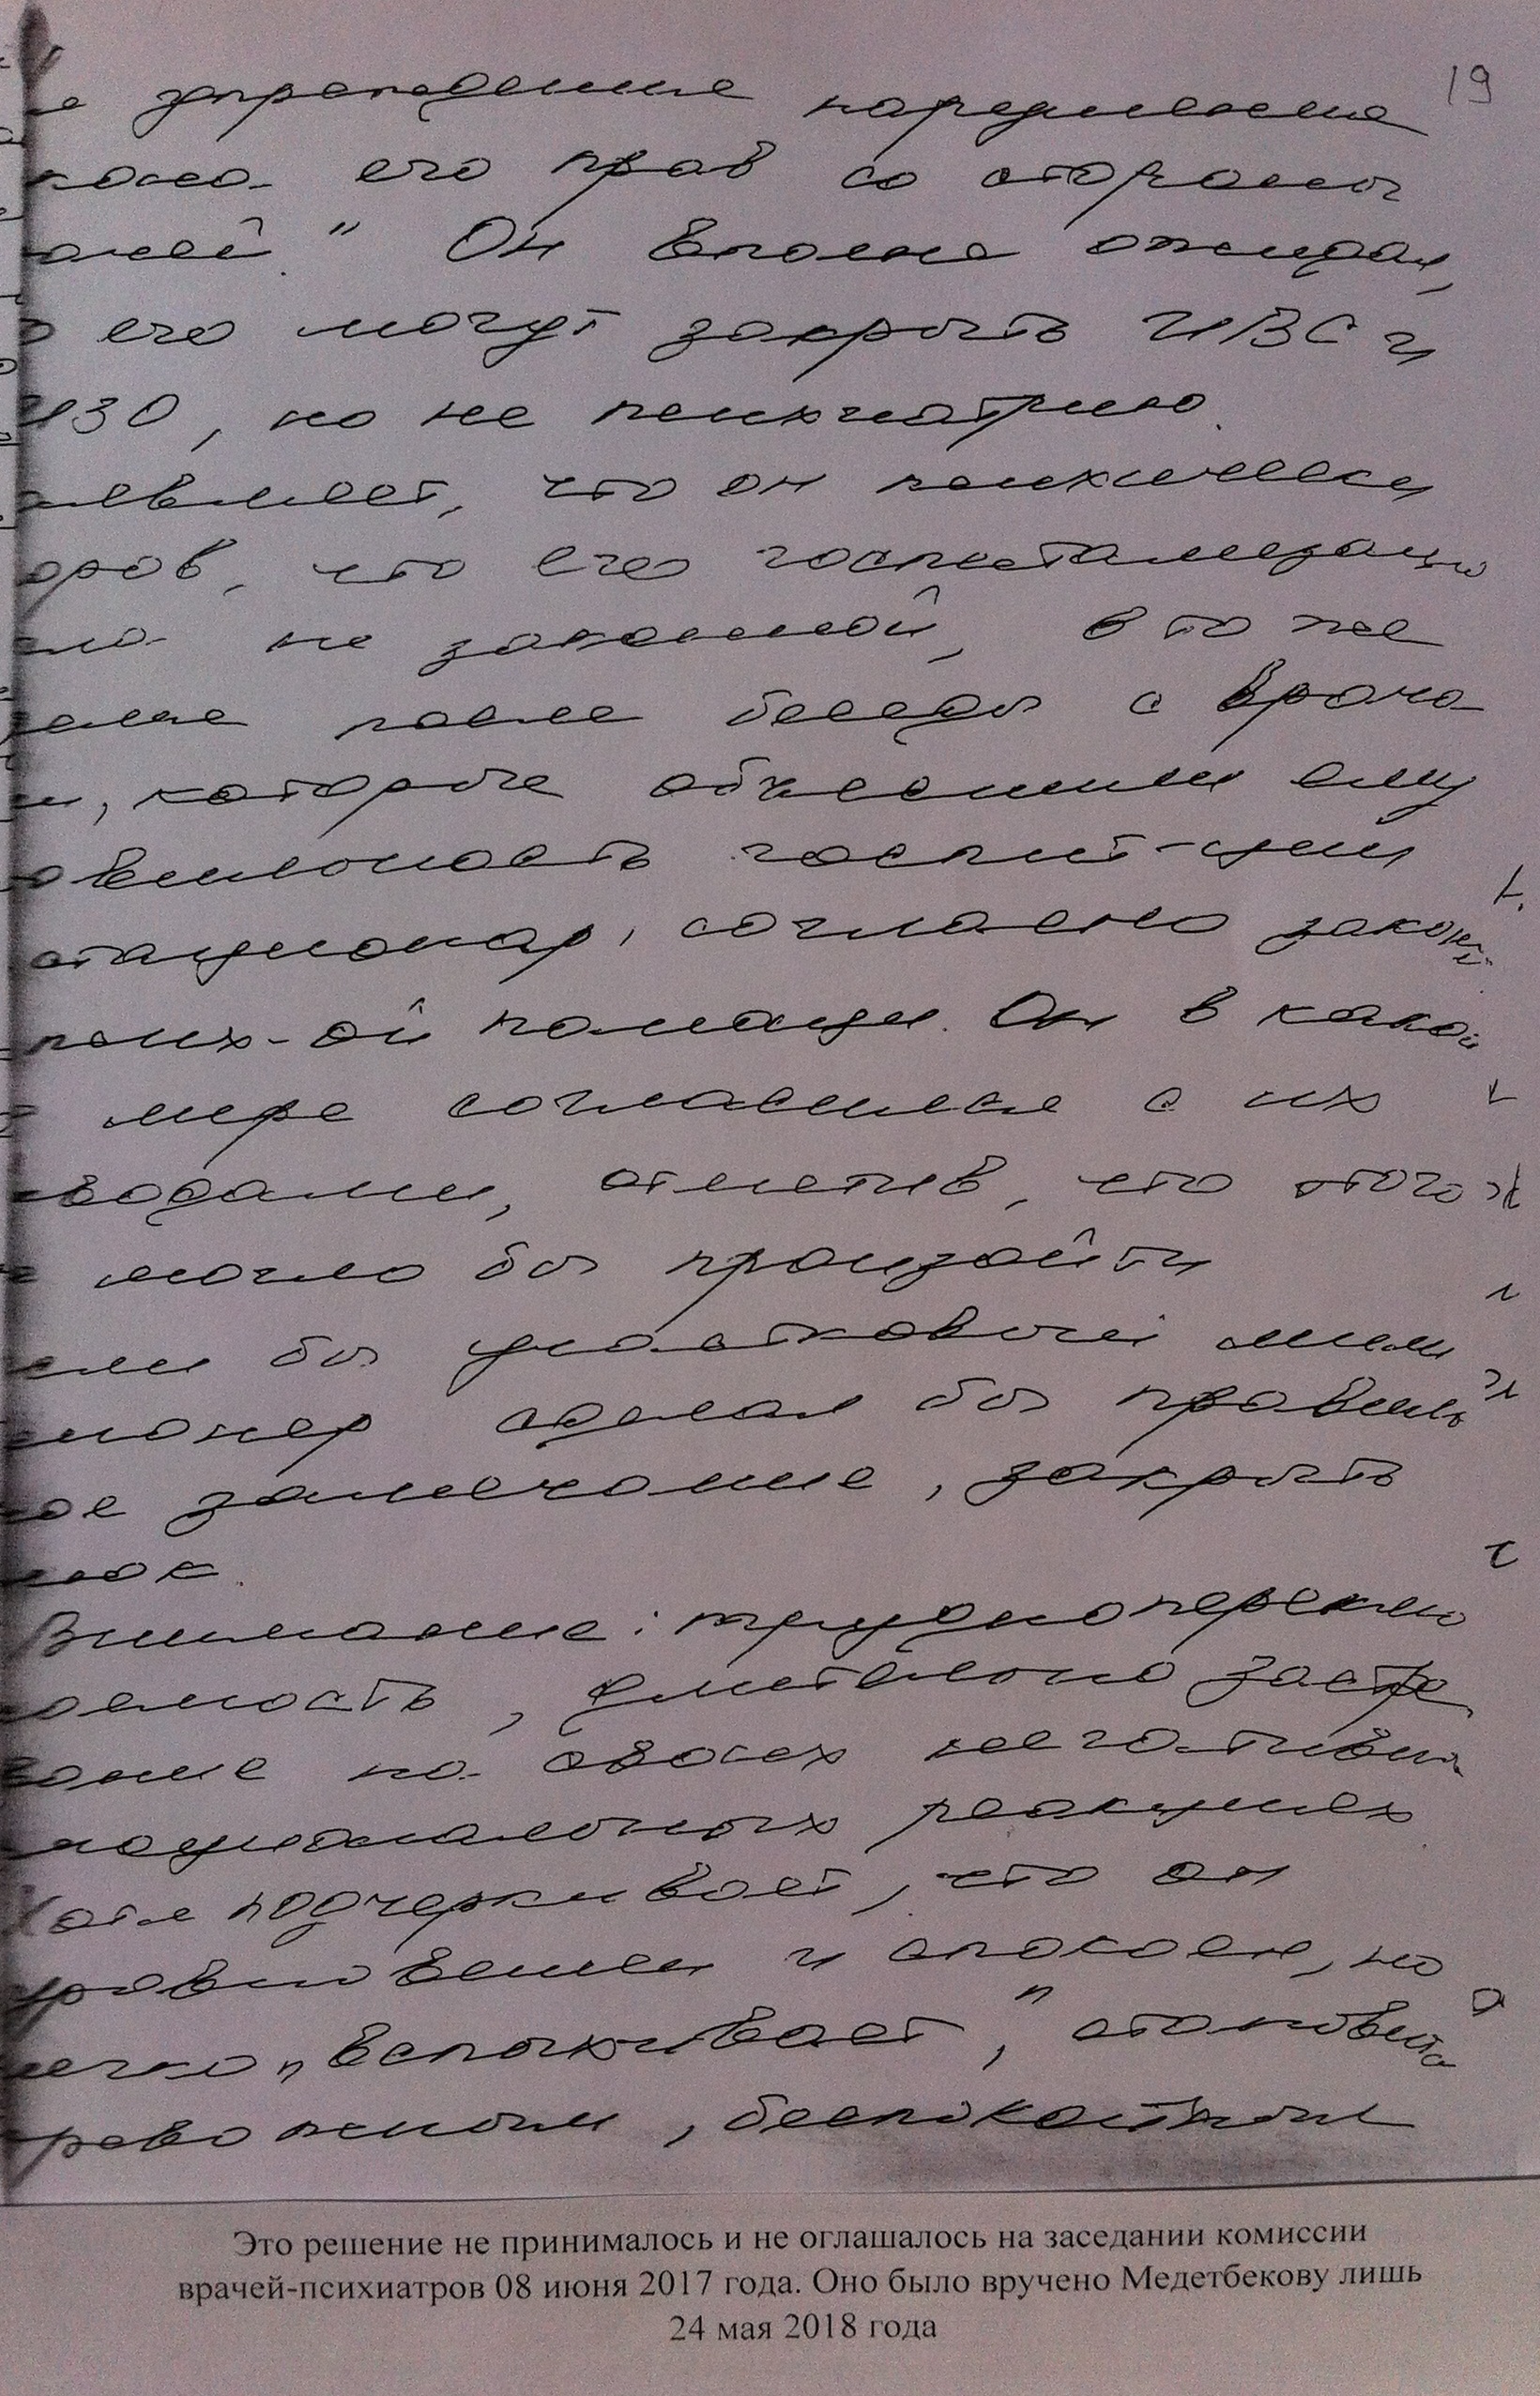 19
запреждение нарушения
его прав со стороны
" Он вполне ожидал,
его могут закрыть ИВС и
ИЗО, но не психиатрию.
что он психически
что его госпитализация
не законной, в то же
после беседы с врача
, которые объяснили ему
госпит-ции
стационар, согласно закона
псих-ой помощи. Он в какой
мере согласился с их
водами, отметив, что этого
могло бы произойти
если бы участковый мили
ционер сделал бы правиль
ное замечание, закрыть
Внимание: труднопереклю
чаемость, длительно застре
вание на своих негативн.
эмоциональных реакциях
Хотя подчеркивает, что он
уравновешен и спокоен, но
легко „вспыхивает", становится
тревожным, беспокойным
Это решение не принималось и не оглашалось на заседании комиссии
врачей-психиатров 08 июня 2017 года. Оно было вручено Медетбекову лишь
24 мая 2018 года